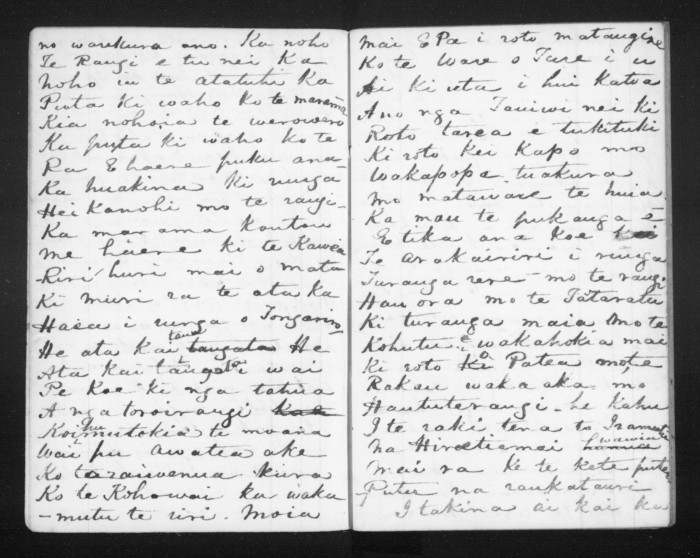 no warekura ano. Ka noho
Te Rangi e tu nei Ka
Noho iu te atatuhi Ka
Puta ki waho ko te marama
Kia nohoia te werowero
Ka puta ki waho ko te
Ra E haere puku ana
Ka huakina ki runga
Hei Kanohi mo te rangi
Ka marama koutou
me haere ki te Kawea
Riri huri mai o mata
Ki muri ra te ata ka
Hasa i runga o Tongariro
He ata kai tangata He
tang
Ata kai tangata i wai
Pe koe ki nga tahua
A nga toroirangi
Koi mutokia te moana
hu
Wai pu awatea ake
Ko taraiwenua kura
Ko te Kohowai ka waka
-mutu te riri. Moia
mai E Pa i roto matangi
Ko te Ware o Ture i u
Ai ki uta i hui katoa
Ano nga Tauiwi nei ki
Roto tarea e tukituki
Ki roto kei kapo mo
Wakapopa tuakura
Mo mataware te huia
Ka mau te pukanga e
E tika ana koe
Te Arakairiri i runga
Turanga rere - mo te rangi
Hau ora mo te Tataratu
Ki turanga maia. Mo te
Kohutu e wakahokia mai
Ki roto o Patea mote
Rakau waka aka mo
Haututerangi - he kahu
I te raki tena to Iramutu
Na Hinetiemai
wawiri
Mai ra Ki te kete putu
Putu na raukatauri
I takina ai kai ka